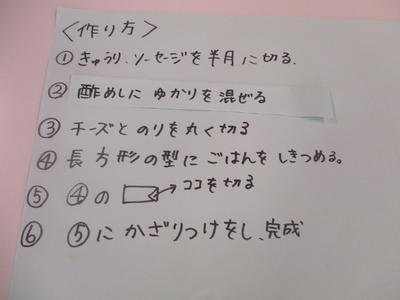 〈作り方〉
①きゅうり、ソーセージを半月に切る、
②酢めしに ゆかりを混ぜる
③チーズと のりを丸く切る
④長方形の型に ごはんを しきつめる。
⑤ ④の ココを切る
⑥ ⑤に かざりつけをし、完成